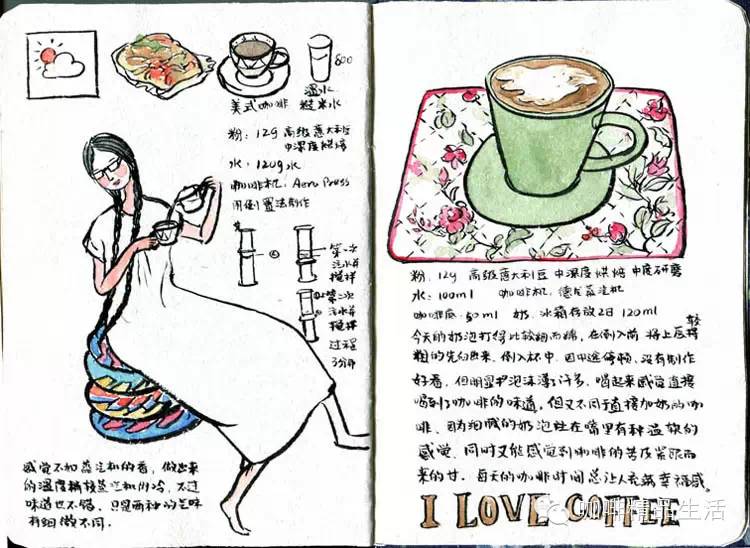 800
温水
美式咖啡 糙米水
粉：12g 高级意大利豆
中深度烘焙
水：120g水
咖啡机：Aero Press
用倒置法制作
第一次
注水并
搅拌
第二次
注水并
搅拌
过程
3分钟
感觉不如蒸汽机的香，做出来
的温度稍较蒸汽机的冷，不过
味道也不错，只是两种的美味
有细微不同。
粉：12g 高级意大利豆 中深度烘焙 中度研磨
水：100ml 咖啡机：德龙蒸汽机
咖啡底：50ml 奶：冰箱存放2日 120ml
今天的奶泡打得比较细而绵，在倒入前 将上层较
粗的先勺出来，倒入杯中，因中途停顿，没有制作
好看，但明显奶泡沫薄了许多，喝起来感觉直接
喝到了咖啡的味道。但又不同于直接加奶的咖
啡，因为细腻的奶泡在嘴里有种温软的
感觉，同时又能感觉到咖啡的苦及紧跟而
来的甘。每天的咖啡时间总让人充满幸福感。
I LOVE COFFEE
咖啡精品生活